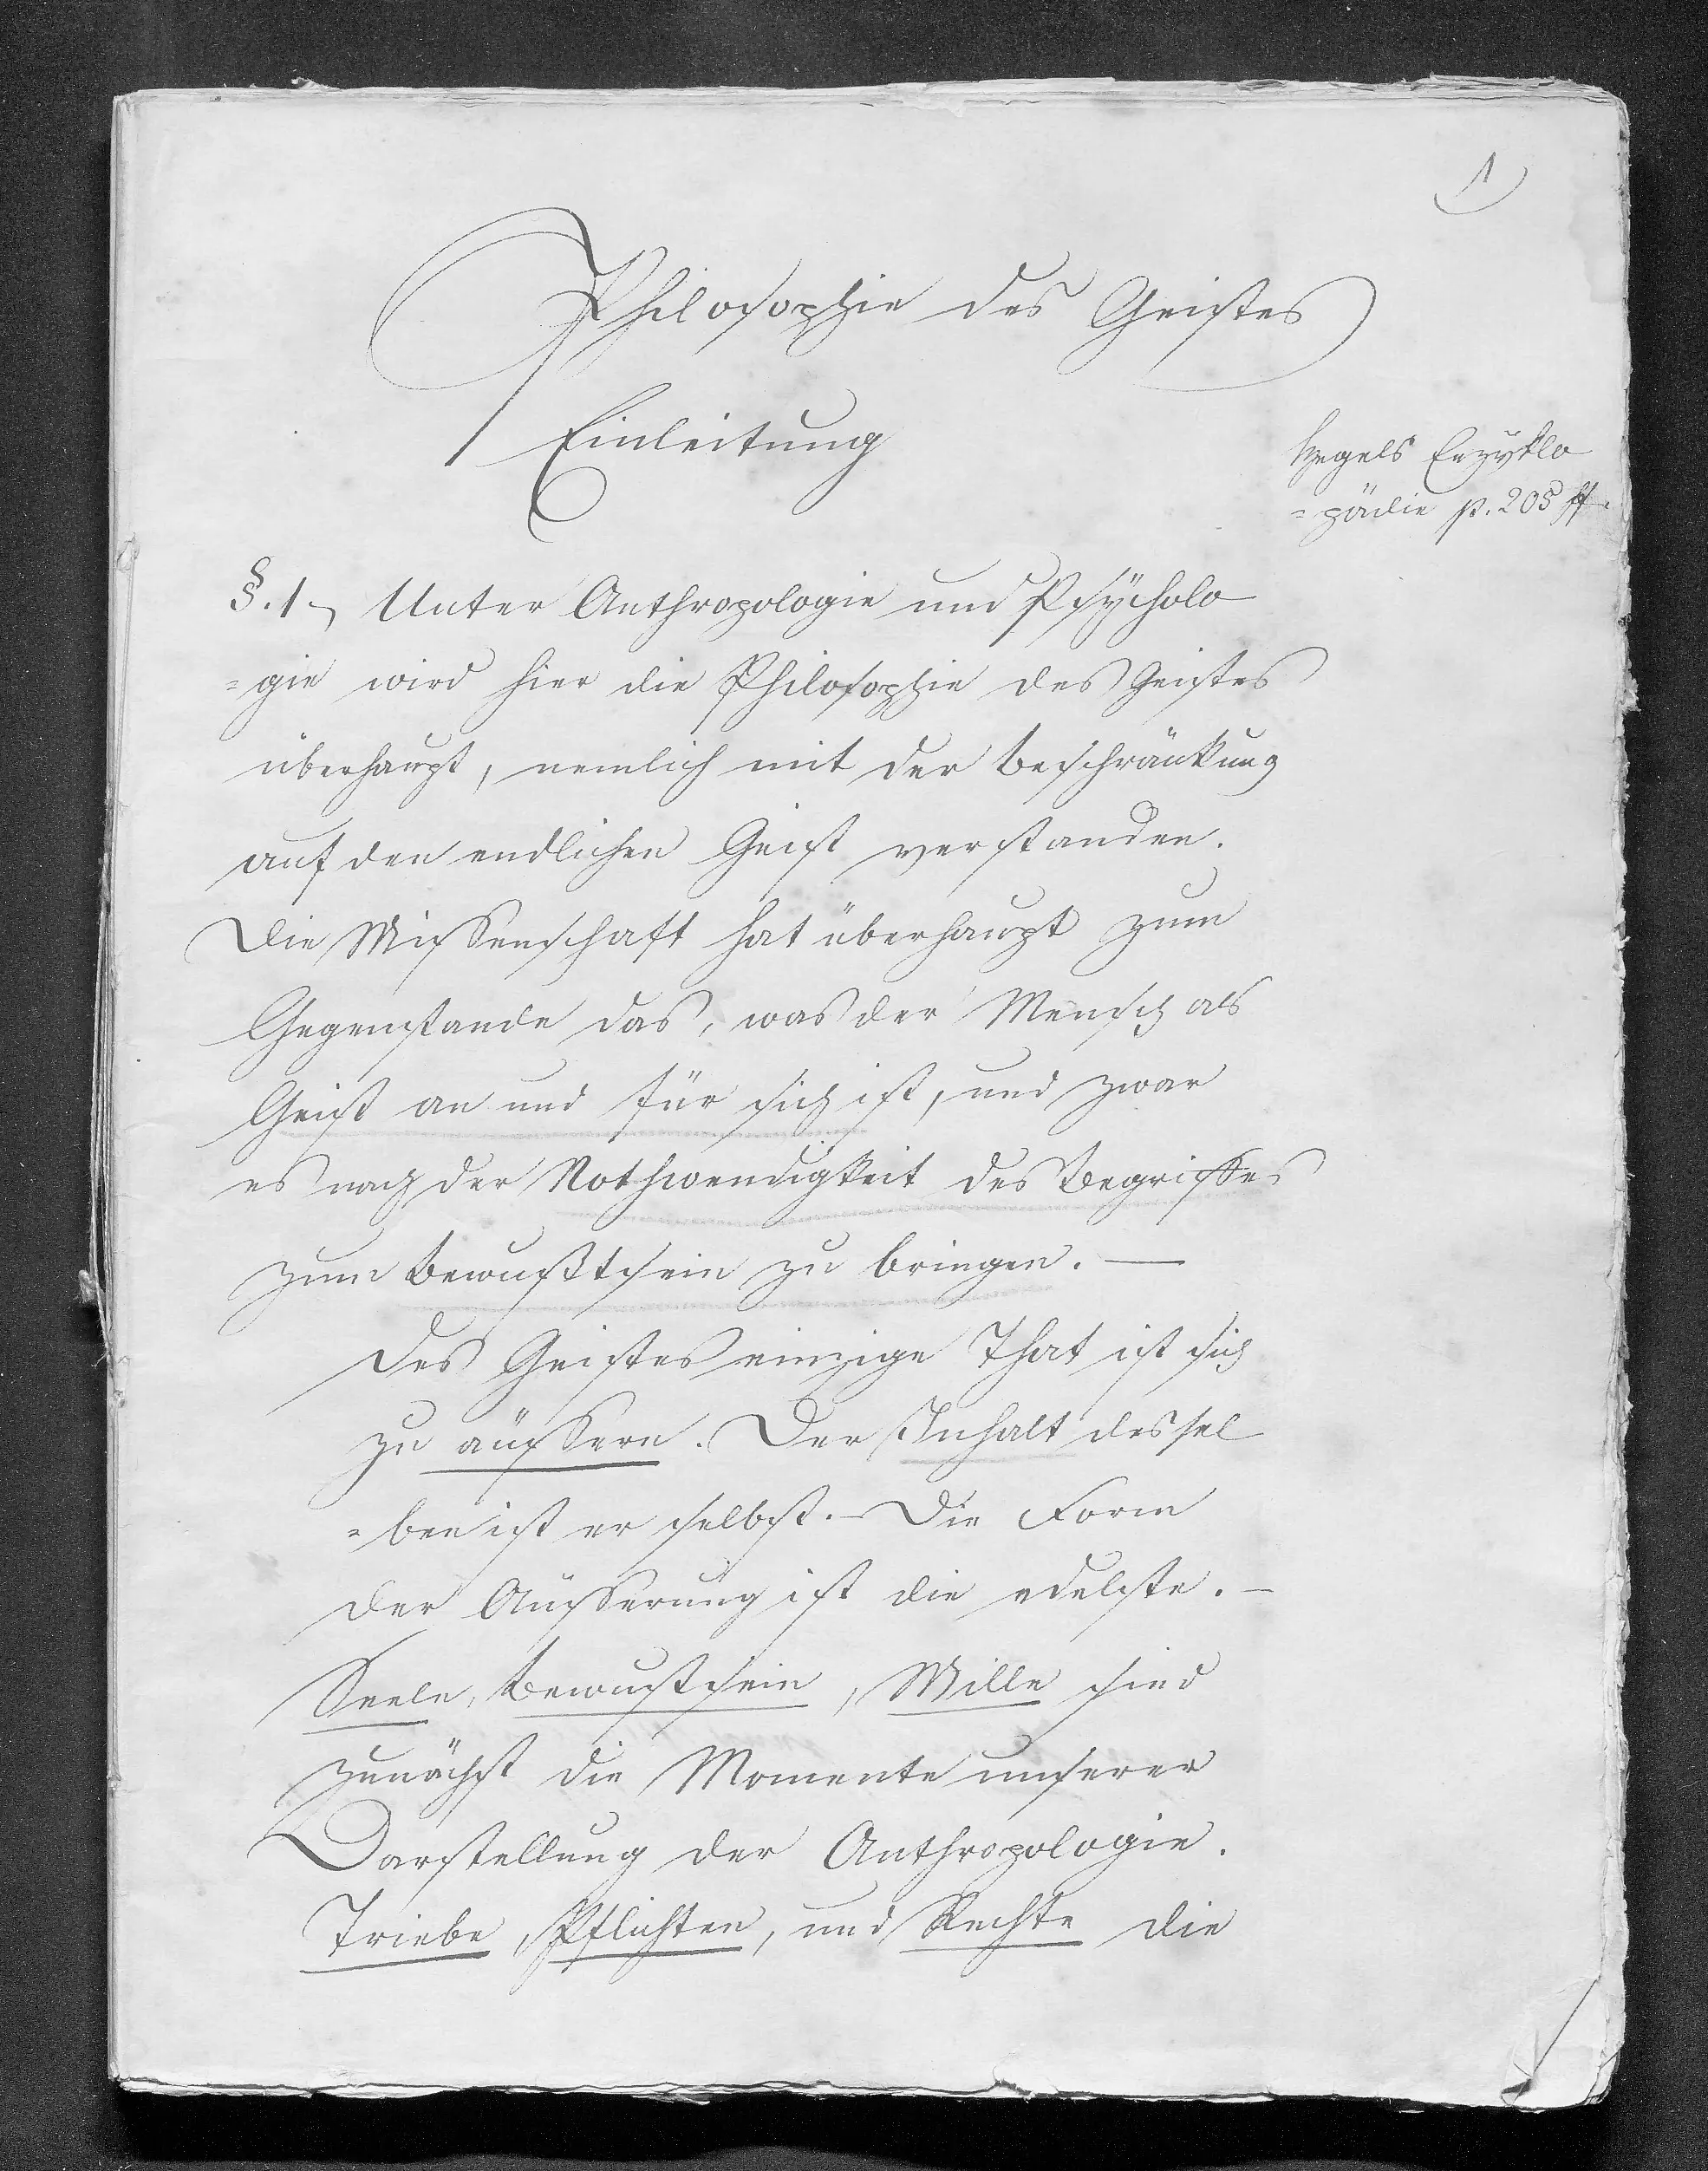 1
Philosophie des Geistes
Einleitung
Hegels Enzyklo
=pädie p. 205 ff.
§. 1, Unter Anthropologie und Psycholo
=gie wird hier die Philosophie des Geistes
überhaupt, nemlich mit der Beschränkung
auf den endlichen Geist verstanden.
Die Wissenschaft hat überhaupt zum
Gegenstande das, was der Mensch als
Geist an und für sich ist, und zwar
es nach der Nothwendigkeit des Begriffes
zum Bewußtsein zu bringen. —
Des Geistes einzige That ist sich
zu äussern. Der Inhalt dessel
=ben ist er selbst. – Die Form
der Äusserung ist die edelste. –
Seele, Bewustsein, Wille sind
zunächst die Momente unserer
Darstellung der Anthropologie.
Triebe, Pflichten, und Rechte die